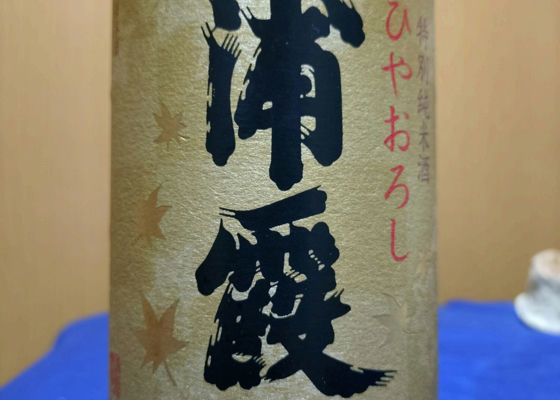 特別純米酒
ひやおろし
浦霞